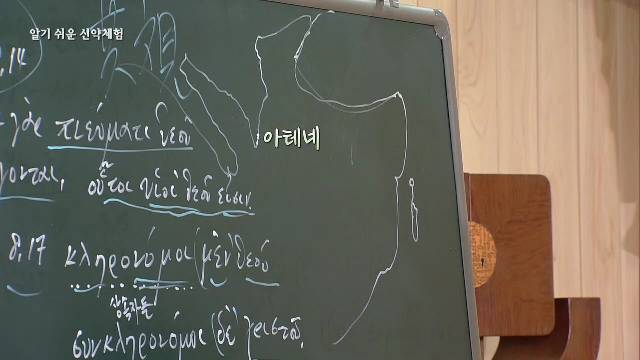 알기 쉬운 신약체험
,14
아테네
γὰρ πνεύματι θεοῦ
ονται, οὗτοι υἱοί θεοῦ εἰσιν.
8,17 κληρονόμοι (μὲν) θεοῦ
상속자들
συνκληρονόμοι (δὲ) χριστοῦ,